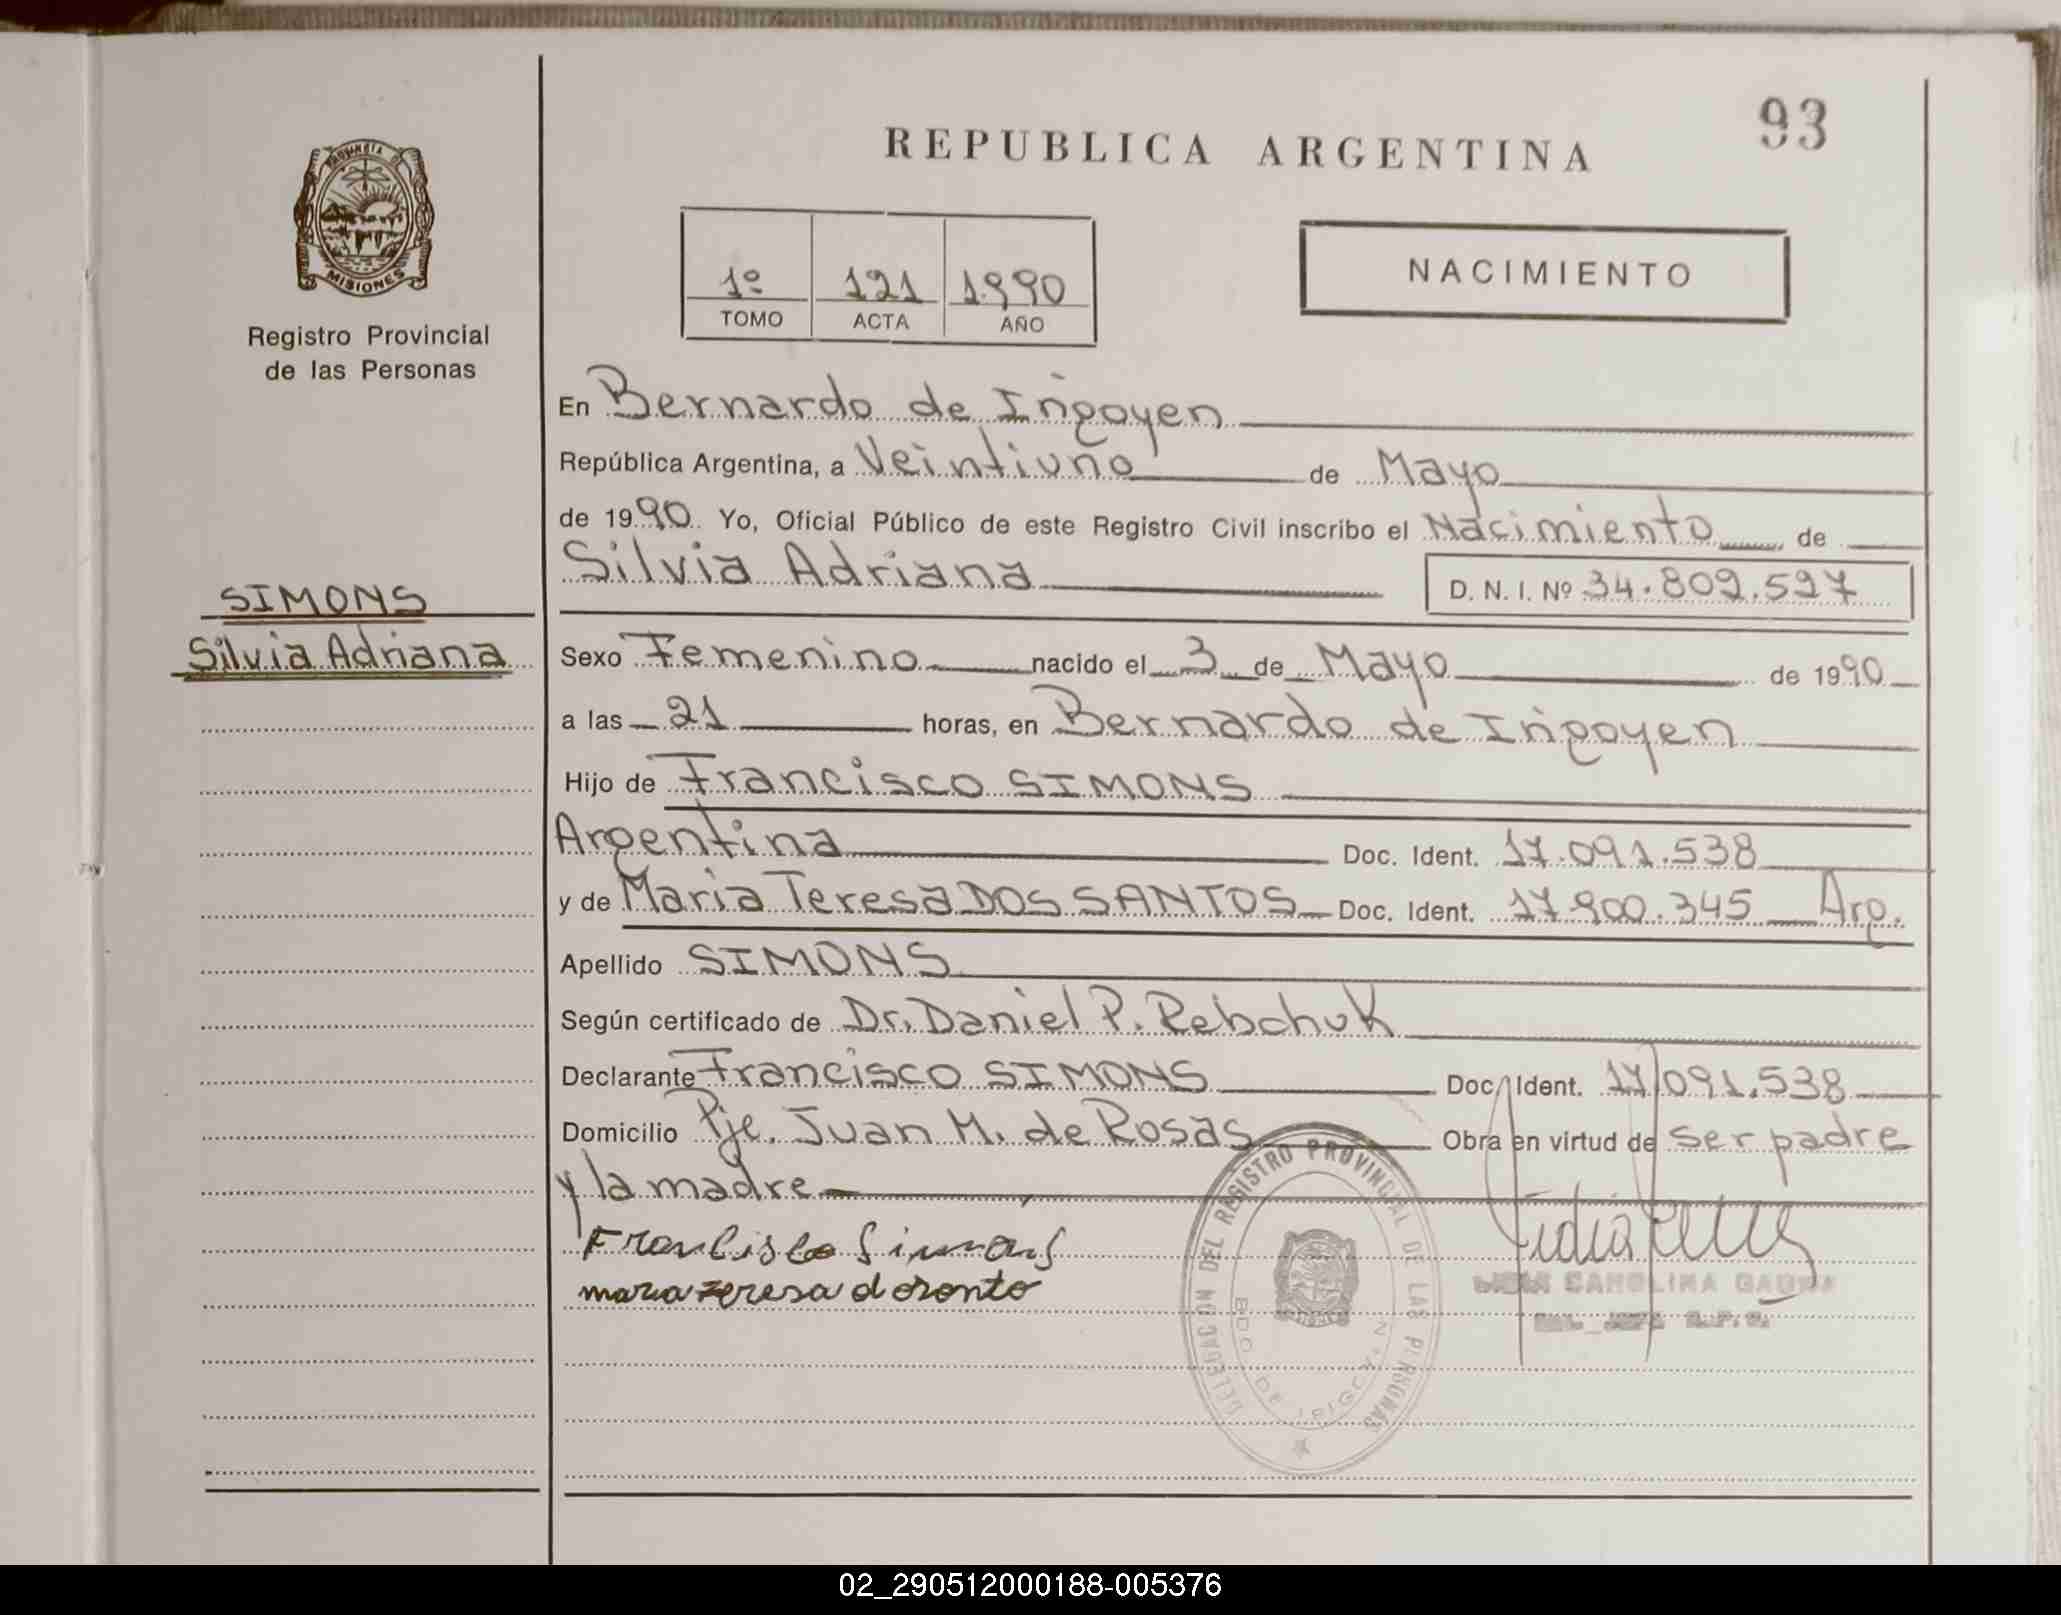 93
REPUBLICA ARGENTINA
PROVINCIA DE
MISIONES
Registro Provincial
de las Personas
1º 121 1.990
TOMO ACTA AÑO
NACIMIENTO
En Bernardo de Irigoyen
República Argentina, a Veintiuno de Mayo
de 1990 Yo, Oficial Público de este Registro Civil inscribo el Nacimiento de
Silvia Adriana D. N. I. Nº 34.809.597
SIMONS
Silvia Adriana
Sexo Femenino nacido el 3 de Mayo de 1990
a las 21 horas, en Bernardo de Irigoyen
Hijo de Francisco SIMONS
Argentina Doc. Ident. 17.091.538
y de Maria Teresa DOS SANTOS Doc. Ident. 17.900.345 Arg.
Apellido SIMONS
Según certificado de Dr. Daniel P. Rebchuk
Declarante Francisco SIMONS Doc. Ident. 17.091.538
Domicilio Pje. Juan M. de Rosas Obra en virtud de ser padre
y la madre
Francisco Simons
maria teresa
DELEGACION DEL REGISTRO PROVINCIAL DE LAS PERSONAS
BDO DE IRIGOYEN
CAROLINA
02_290512000188-005376